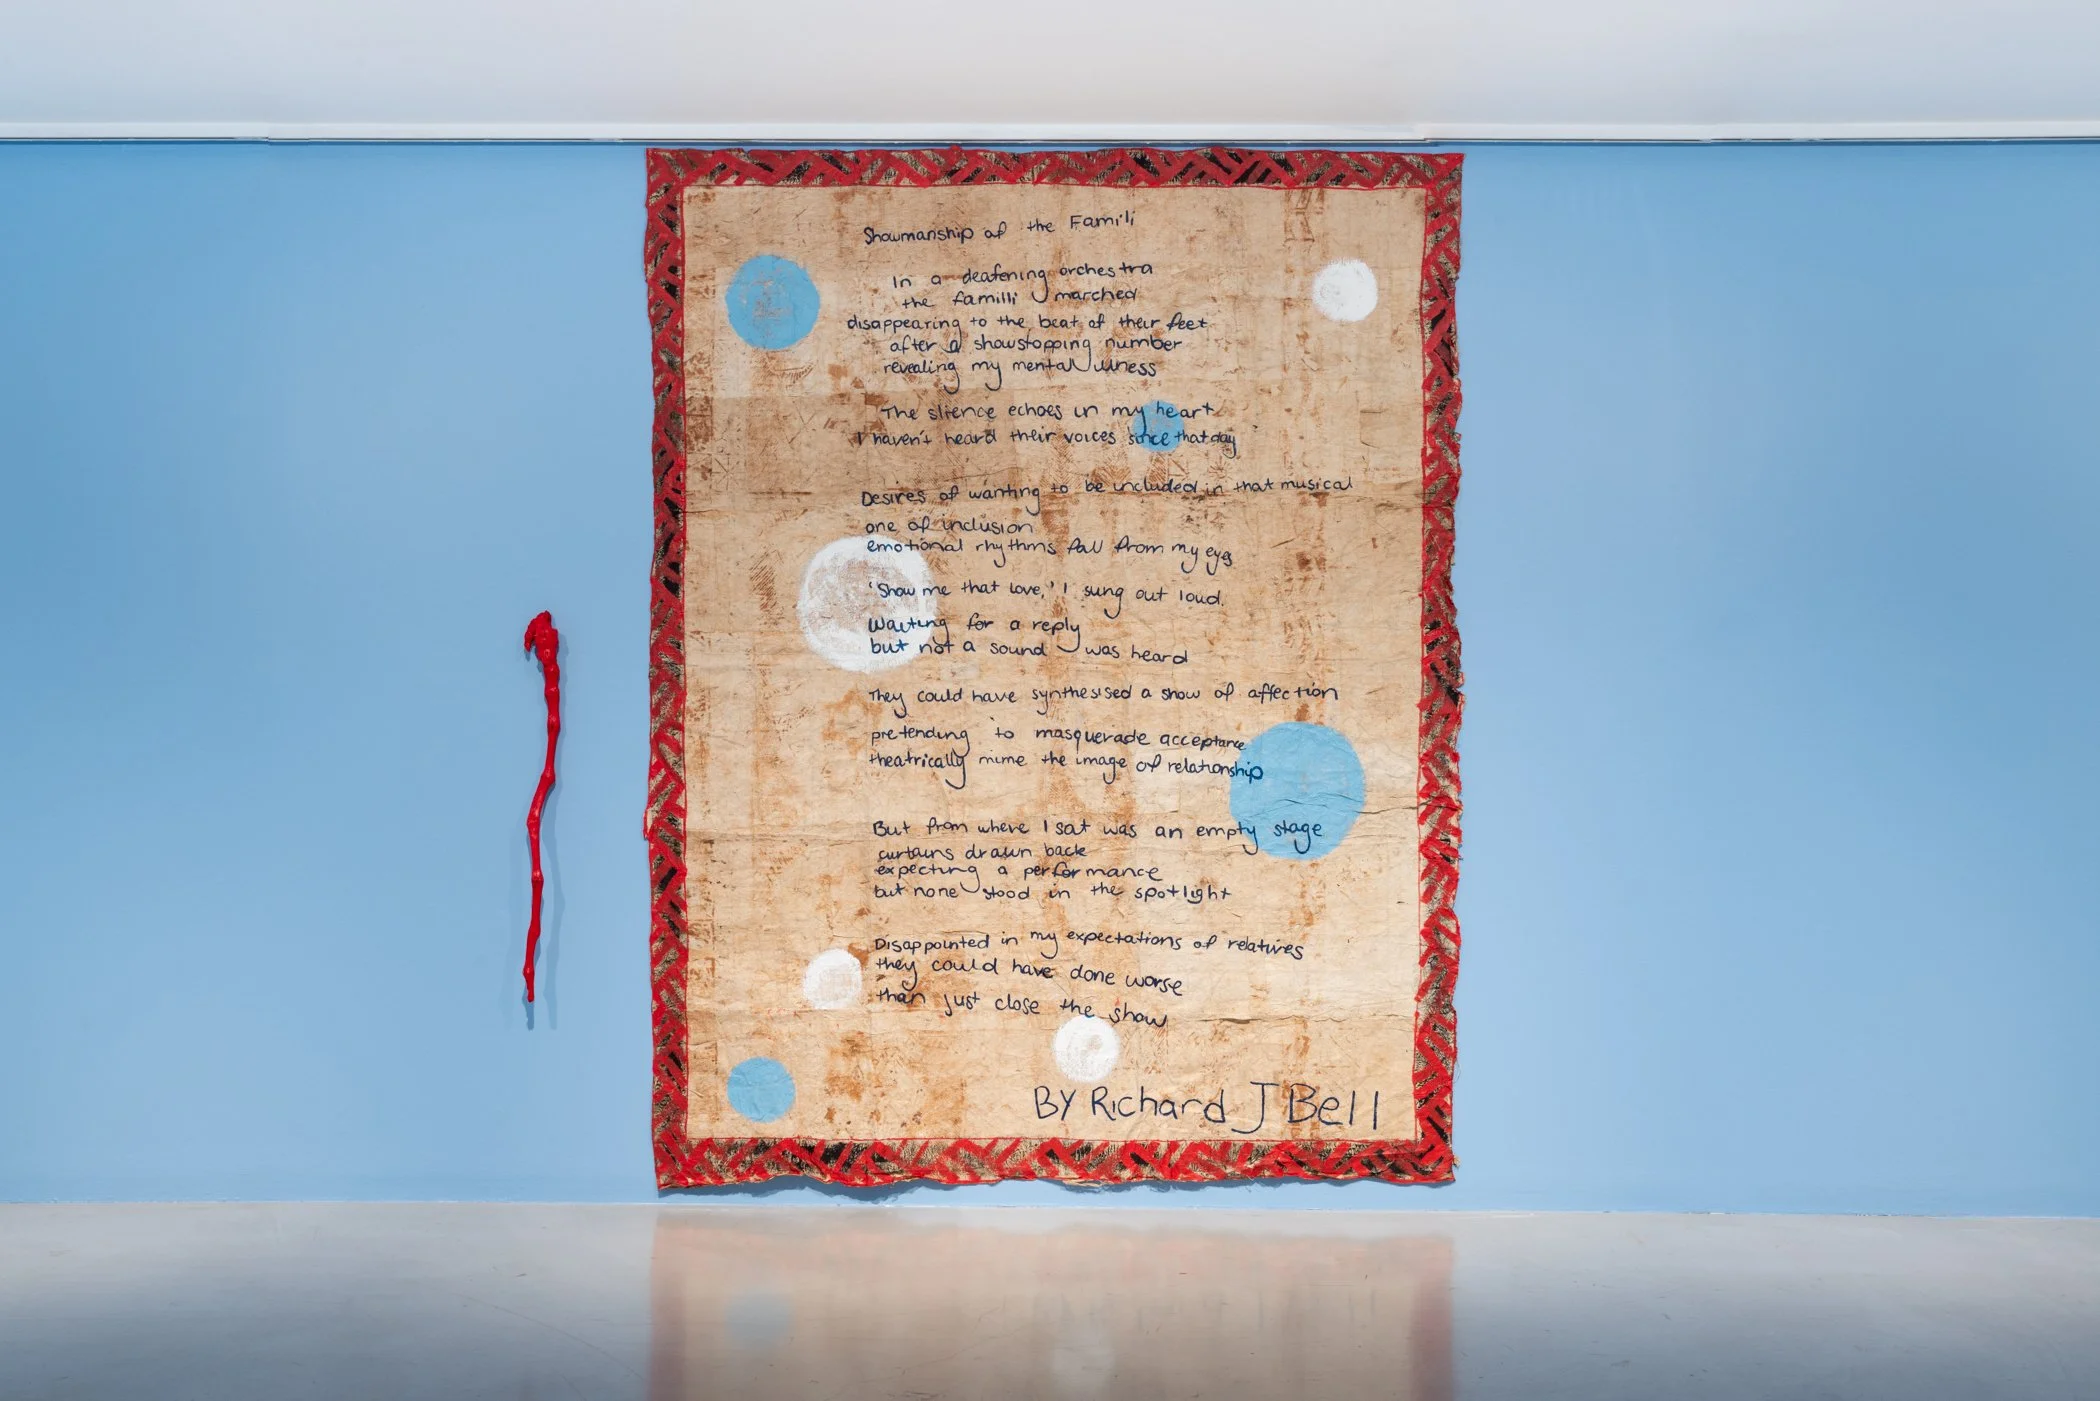 Showmanship of the Famili
In a deafening orchestra
the familli marched
disappearing to the beat of their feet
after a showstopping number
revealing my mental illness
The silence echoes in my heart
I haven't heard their voices since that day
Desires of wanting to be included in that musical
one of inclusion
emotional rhythms fall from my eyes
'Show me that love,' I sung out loud.
Waiting for a reply
but not a sound was heard
They could have synthesised a show of affection
pretending to masquerade acceptance
theatrically mime the image of relationship
But from where I sat was an empty stage
curtains drawn back
expecting a performance
but none stood in the spotlight
Disappointed in my expectations of relatives
they could have done worse
than just close the show
BY Richard J Bell